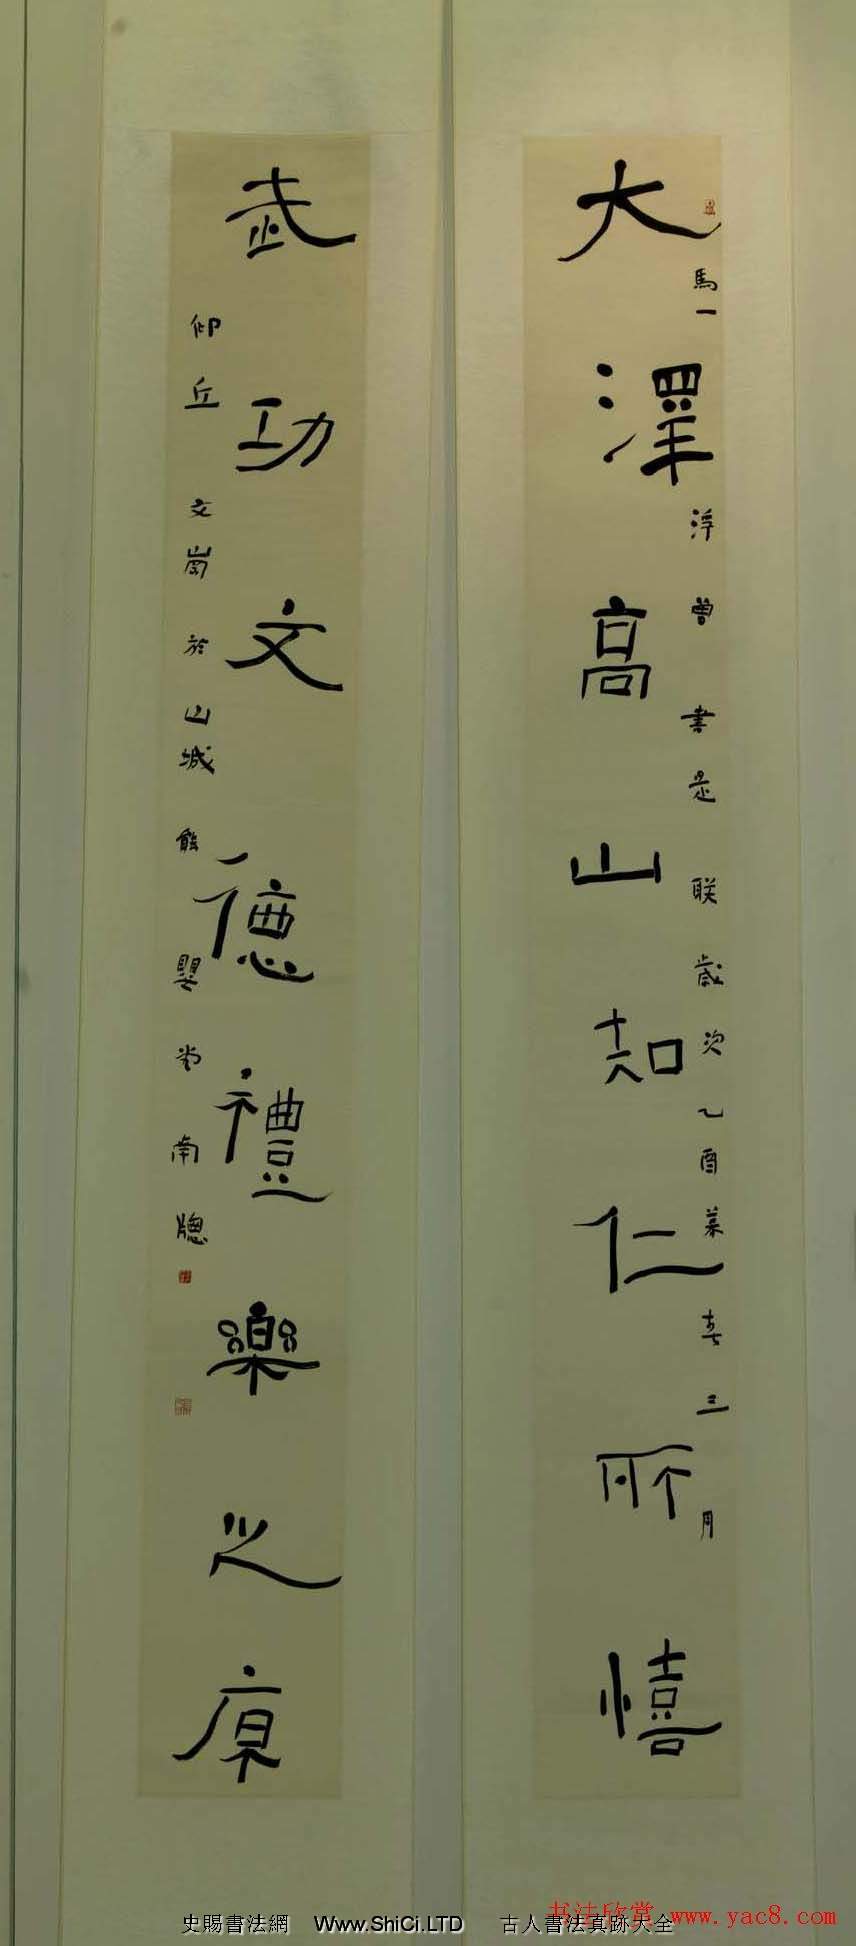 大澤高山知仁所憙
馬一浮曾書是联歲次乙酉暮春三月
武功文德禮樂之原
仰丘文嵐於山城
南牕
史賜書法網 Www.ShiCi.LTD 古人書法真跡大全
书法欣赏 www.yac8.com